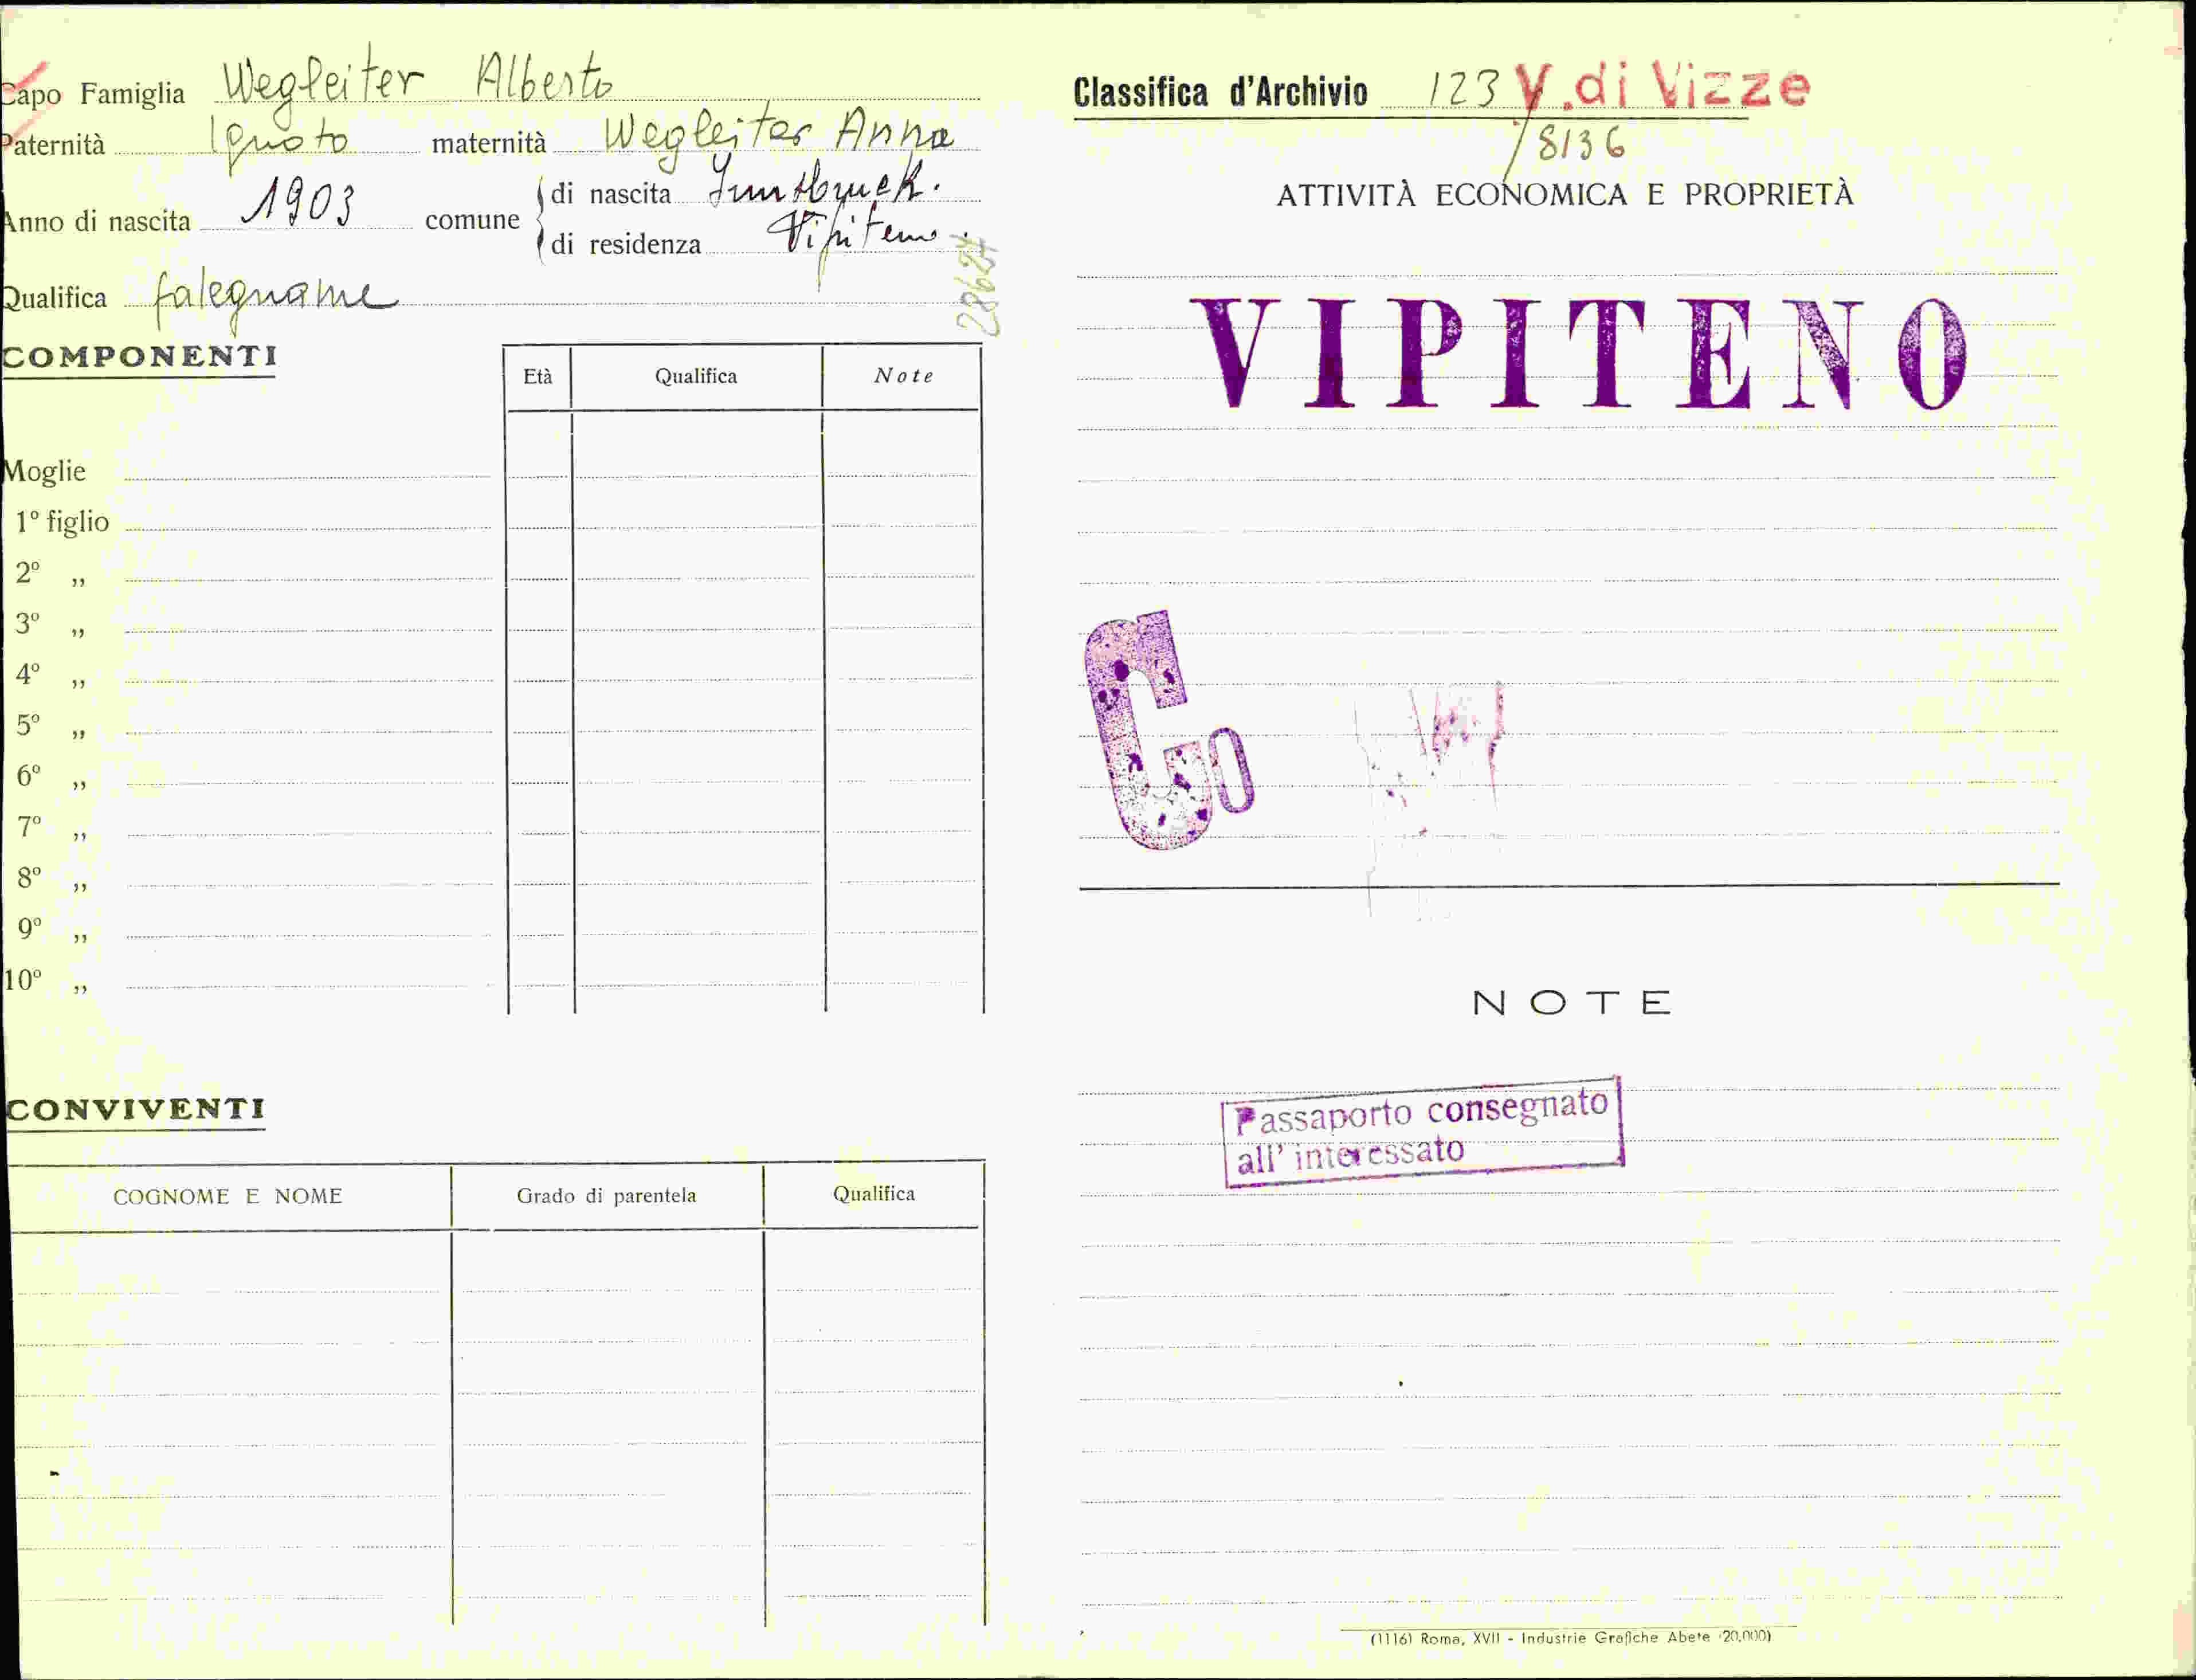 Capo Famiglia Wegleiter Alberto
Paternità Ignoto maternità Wegleiter Anna
Anno di nascita 1903 comune di nascita Innsbruck.
di residenza Vipiteno.
28624
Qualifica falegname
COMPONENTI
Età Qualifica Note
Moglie
1º figlio
2º „
3º „
4º „
5º „
6º „
7º „
8º „
9º „
10º „
CONVIVENTI
COGNOME E NOME Grado di parentela Qualifica
Classifica d'Archivio 123 V. di Vizze
/8136
ATTIVITÀ ECONOMICA E PROPRIETÀ
VIPITENO
G0
NOTE
Passaporto consegnato
all' interessato
(1116) Roma, XVII - Industrie Grafiche Abete (20.000)